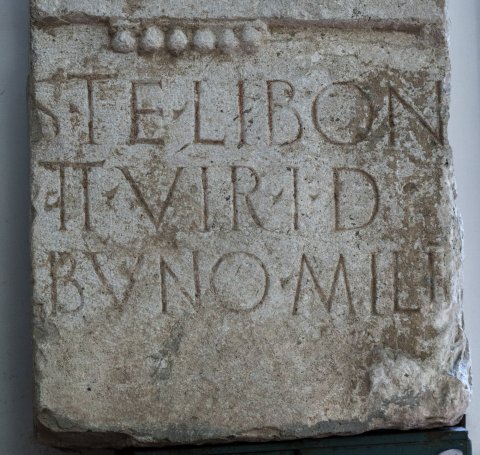 S·TE·LIBON
II·VIR·I·D
BVNO·MILIT